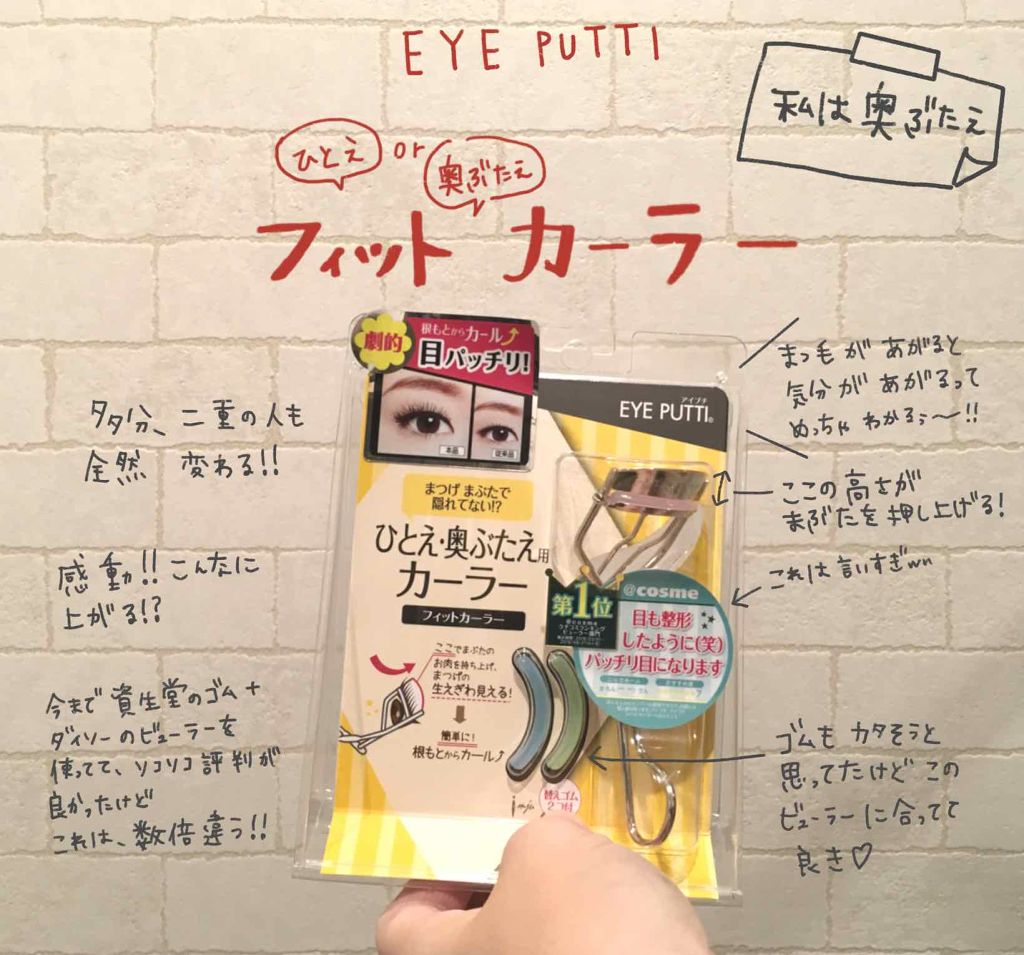 EYE PUTTI
私は奥ぶたえ
ひとえ or 奥ぶたえ
フィット カーラー
タタ分、二重の人も
全然 変わる!!
感動!! こんなに
上がる!?
今まで資生堂のゴム+
ダイソーのビューラーを
使ってて、ソコソコ評判が
良かったけど
これは、数倍違う!!
まつ毛が あがると
気分が あがるって
めっちゃ わかるぅ〜!!
ここの高さが
まぶたを押し上げる!
これは言いすぎwn
ゴムも カタそうと
思ってたけど この
ビューラーに合ってて
良き♡
劇的
根もとからカール
目パッチリ!
本品
従来品
アイプチ
EYE PUTTI®
まつげ まぶたで
隠れてない!?
ひとえ・奥ぶたえ用
カーラー
フィットカーラー
ここでまぶたの
お肉を持ち上げ、
まつげの
生えぎわ見える!
簡単に!
根もとからカール
第1位
@cosme
@cosme
目も整形
したように(笑)
パッチリ目になります
替えゴム
2つ付
imju